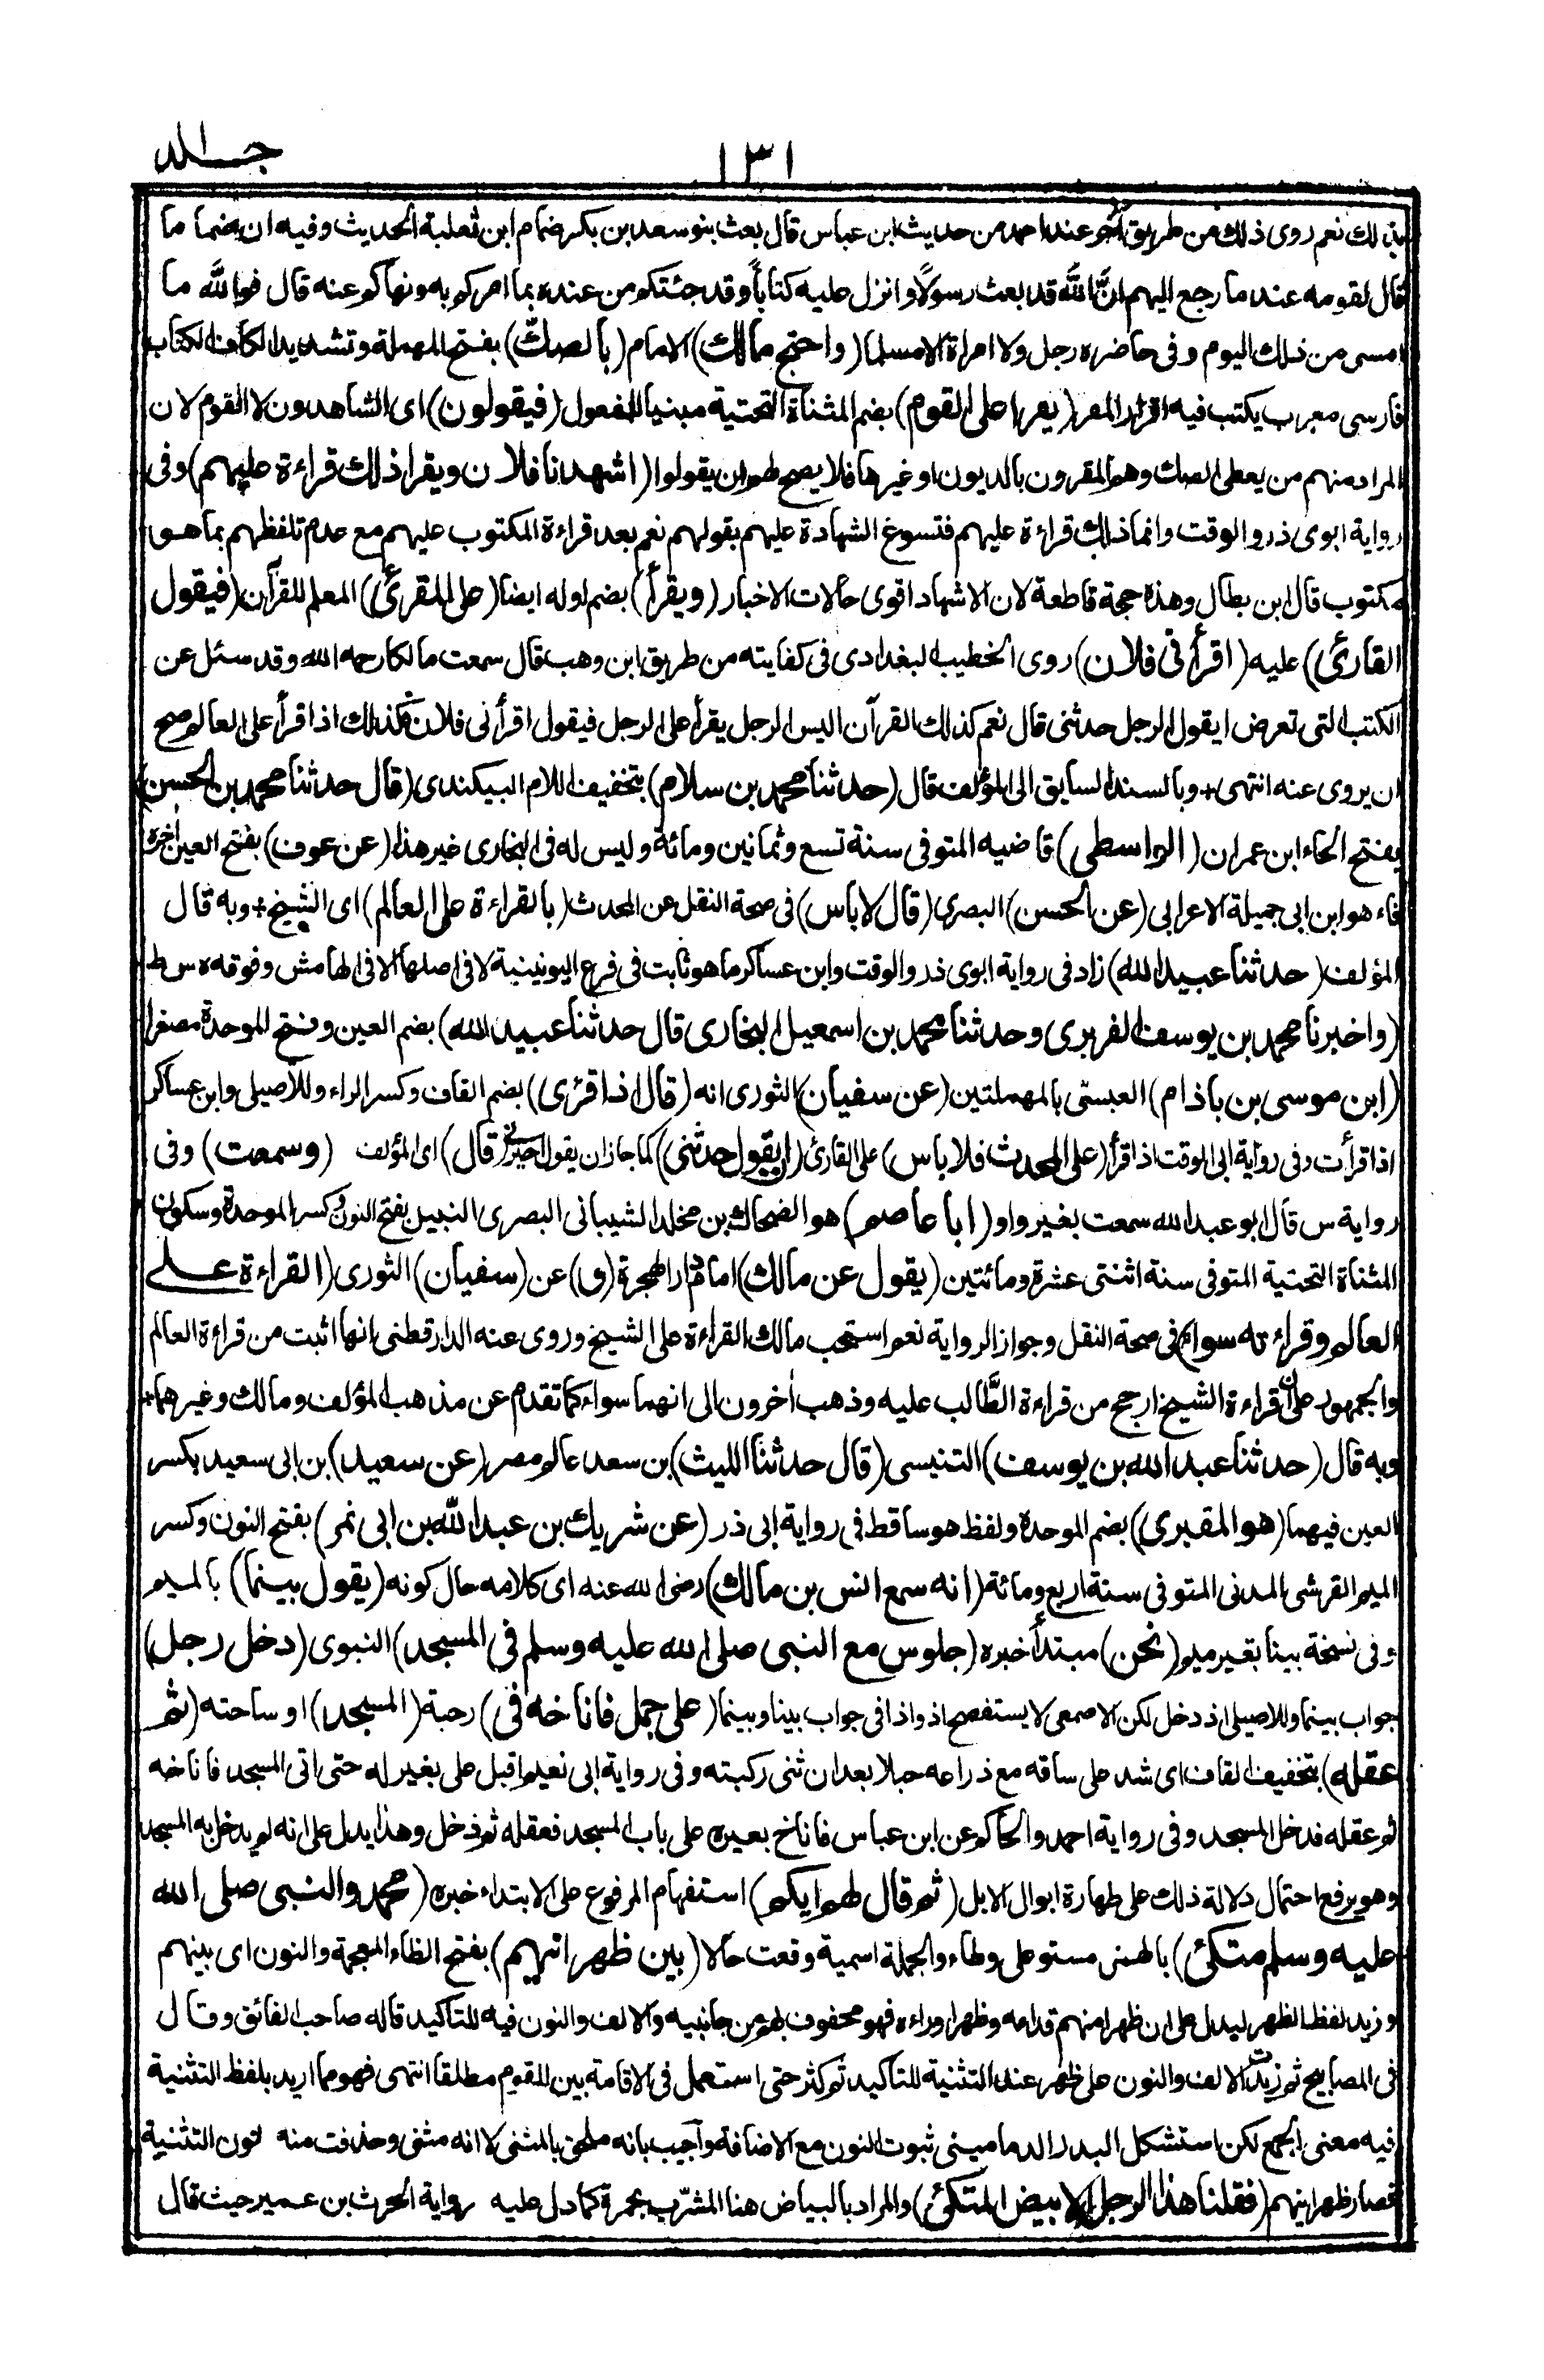 ١٣١
جلد
بذلك نعم روى ذلك من طريق أخر عند احمد من حديث ابن عباس قال بعث بنو سعد بن بكر ضمام ابن ثعلبة الحديث وفيه ان ضماما ما
قال لقومه عند ما رجع اليهم انَّ اللّٰه قد بعث رسولًا وانزل عليه كتاباً وقد جئتكم من عنده بما امركم به ونهاكم عنه قال فواللّٰه ما
امسى من ذلك اليوم وفى حاضره رجل ولا امراة الا مسلما (واحتج مالك) الامام (بالصكّ) بفتح المهملة وتشديد الكاف الكتاب
فارسى معرب يكتب فيه اقرار المقر (يقرا على القوم) بضم المثناة التحتية مبنيا للمفعول (فيقولون) اى الشاهدون لا القوم لان
المراد منهم من يعطى الصك وهم المقرون بالديون او غيرها فلا يصح لهم ان يقولوا (اشهدنا فلان ويقرا ذلك قراءة عليهم) وفى
رواية ابوى ذر والوقت وانما ذلك قراءة عليهم فتسوغ الشهادة عليهم بقولهم نعم بعد قراءة المكتوب عليهم مع عدم تلفظهم بما هو
مكتوب قال ابن بطال وهذه حجة قاطعة لان الاشهاد اقوى حالات الاخبار (ويقرأ) بضم اوله ايضا (على المقرئ) المعلم للقرآن (فيقول
القارئ) عليه (اقرأنى فلان) روى الخطيب البغدادى فى كفايته من طريق ابن وهب قال سمعت مالكا رحمه الله وقد سئل عن
الكتب التى تعرض ايقول الرجل حدثنى قال نعم كذلك القرآن اليس الرجل يقرأ على الرجل فيقول اقرأنى فلان فكذلك اذا قرأ على العالم صح
ان يروى عنه انتهى + وبالسند السابق الى المؤلف قال (حدثنا محمد بن سلام) بتخفيف اللام البيكندى (قال حدثنا محمد بن الحسن)
بفتح الحاء ابن عمران (الواسطى) قاضيه المتوفى سنة تسع وثمانين ومائة وليس له فى البخارى غير هذا (عن عوف) بفتح العين أخره
فاء هو ابن ابى جميلة الاعرابى (عن الحسن) البصرى (قال لا باس) فى صحة النقل عن المحدث (بالقراءة على العالم) اى الشيخ + وبه قال
المؤلف (حدثنا عبيد الله) زاد فى رواية ابوى ذر والوقت وابن عساكر ما هو ثابت فى فرع اليونينية لا فى اصلها الا فى الهامش وفوقه ه س ط
(واخبرنا محمد بن يوسف الفربرى وحدثنا محمد بن اسمعيل البخارى قال حدثنا عبيد الله) بضم العين وفتح الموحدة مصغرا
(ابن موسى بن باذام) العبسى بالمهملتين (عن سفيان) الثورى انه (قال اذا قرئ) بضم القاف وكسر الراء وللاصيلى وابن عساكر
اذا قرأت وفى رواية ابى الوقت اذا قرأ (على المحدث فلا باس) على القارئ (ان يقول حدثنى) كما جاز ان يقول اخبرنى (قال) اى المؤلف (وسمعت) وفى
رواية س قال ابو عبد الله سمعت بغير واو (ابا عاصم) هو الضحاك بن مخلد الشيبانى البصرى النبيل بفتح النون وكسر الموحدة وسكون
المثناة التحتية المتوفى سنة اثنتى عشرة ومائتين (يقول عن مالك) امام دار الهجرة (و) عن (سفيان) الثورى (القراءة على
العالم وقراءته سواء) فى صحة النقل وجواز الرواية نعم استحب مالك القراءة على الشيخ وروى عنه الدارقطنى انها اثبت من قراءة العالم
والجمهور على ان قراءة الشيخ ارجح من قراءة الطَّالب عليه وذهب أخرون الى انهما سواء كما تقدم عن مذهب المؤلف ومالك وغيرهما +
وبه قال (حدثنا عبد الله بن يوسف) التنيسى (قال حدثنا الليث) بن سعد عالم مصر (عن سعيد) بن ابى سعيد بكسر
العين فيهما (هو المقبرى) بضم الموحدة ولفظ هو ساقط فى رواية ابى ذر (عن شريك بن عبد اللّٰه بن ابى نمر) بفتح النون وكسر
الميم القرشى المدنى المتوفى سنة اربع ومائة (انه سمع انس بن مالك) رضى الله عنه اى كلامه حال كونه (يقول بينما) بالميم
وفى نسخة بينا بغير ميم (نحن) مبتدأ خبره (جلوس مع النبى صلى الله عليه وسلم فى المسجد) النبوى (دخل رجل)
جواب بينما وللاصيلى اذ دخل لكن الاصمعى لا يستفصح اذ واذا فى جواب بينا وبينما (على جمل فاناخه فى) رحبة (المسجد) او ساحته (ثم
عقله) بتخفيف القاف اى شد على ساقه مع ذراعه حبلا بعد ان ثنى ركبته وفى رواية ابى نعيم اقبل على بعير له حتى اتى المسجد فاناخه
ثم عقله فدخل المسجد وفى رواية احمد والحاكم عن ابن عباس فاناخ بعيره على باب المسجد فعقله ثم دخل وهذا يدل على انه لم يدخل به المسجد
وهو يرفع احتمال دلالة ذلك على طهارة ابوال الابل (ثم قال لهم ايكم) استفهام المرفوع على الابتداء خبره (محمد والنبى صلى الله
عليه وسلم متكئ) بالهمز مستو على وطاء والجملة اسمية وقعت حالا (بين ظهرانيهم) بفتح الظاء المعجمة والنون اى بينهم
وزيد لفظ الظهر ليدل على ان ظهرا منهم قدامه وظهرا وراءه فهو محفوف بهم من جانبيه والالف والنون فيه للتاكيد قاله صاحب الفائق وقال
فى المصابيح ثم زيدت الالف والنون على ظهر عند التثنية للتاكيد ثم كثر حتى استعمل فى الاقامة بين القوم مطلقا انتهى فهو مما اريد بلفظ التثنية
فيه معنى الجمع لكن استشكل البدر الدمامينى ثبوت النون مع الاضافة واجيب بانه ملحق بالمثنى لا انه مثنى وحذفت منه نون التثنية
فصار ظهرانيهم (فقلنا هذا الرجل الابيض المتكئ) والمراد بالبياض هنا المشرّب بحمرة كما دل عليه رواية الحرث بن عمير حيث قال